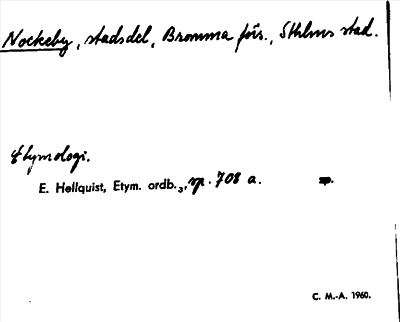 Nockeby, stadsdel, Bromma förs., Sthlms stad.
Etymologi.
E. Hellquist, Etym. ordb.3, sp. 708 a.
C. M.-A. 1960.